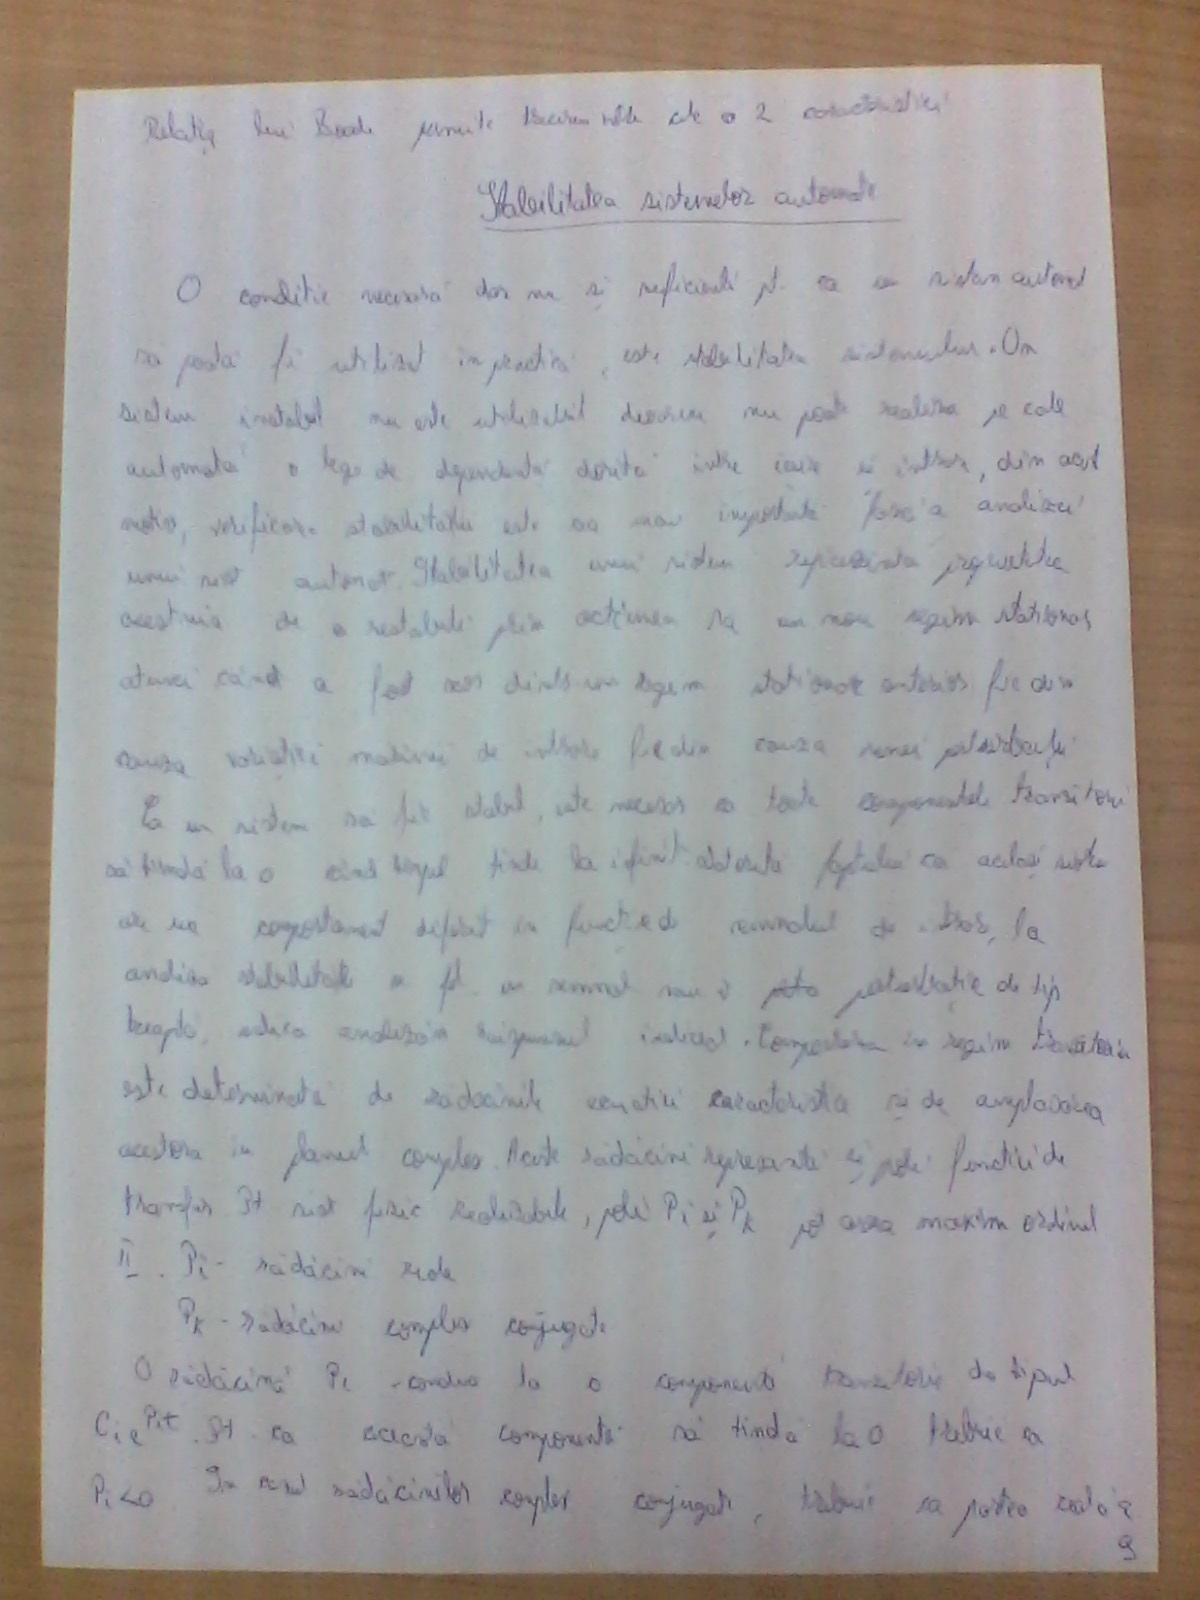 Relația lui Bode permite trecerea cele 2 caracteristici
Stabilitatea sistemelor automate
O conditie necesară dar nu și suficientă pt. ca un sistem automat
să poată fi utilizat in practică, este stabilitatea sistemului. Un
sistem instabil nu este utilizabil deoarece nu poate realiza pe cale
automată o lege de dependentă dorită intre iesire si intrare, din acest
motiv, verificarea stabilitatii este cea mai importantă fază a analizei
unui sist automat. Stabilitatea unui sistem reprezinta proprietatea
acestuia de a restabili prin actiunea sa un nou regim stationar
atunci când a fost scos dintr-un regim stationar anterior fie din
cauza variației marimii de intrare fie din cauza unei perturbații
Ca un sistem sa fie stabil, este necesar ca toate componentele tranzitorii
să tindă la 0 când timpul tinde la infinit datorită faptului ca același sistem
are un comportament diferit in funcție de semnalul de intrare, la
analiza stabilitatii se fol. un semnal sau o perturbatie de tip
treaptă, adica analizăm raspunsul indicial. Comportarea in regim tranzitoriu
este determinată de rădăcinile ecuatiei caracteristice si de amplasarea
acestora in planul complex. Aceste rădăcini reprezintă si poli functiei de
transfer Pt sist fizic realizabile, polii Pi și Pk pot avea maxim ordinul
II. Pi - rădăcini reale
Pk - rădăcini complex conjugate
O rădăcină Pi conduce la o componentă tranzitorie de tipul
Ci e^Pit. Pt ca această componentă să tindă la 0 trebuie ca
Pi<0 In cazul rădăcinilor complex conjugate, trebuie ca partea reală a
9